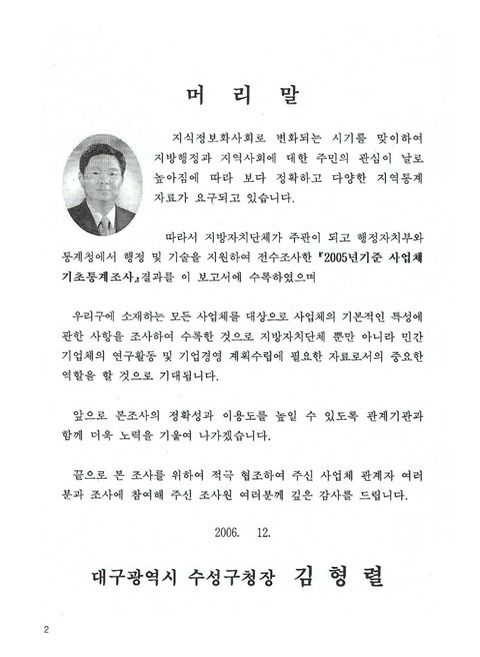 머 리 말
지식정보화사회로 변화되는 시기를 맞이하여
지방행정과 지역사회에 대한 주민의 관심이 날로
높아짐에 따라 보다 정확하고 다양한 지역통계
자료가 요구되고 있습니다.
따라서 지방자치단체가 주관이 되고 행정자치부와
통계청에서 행정 및 기술을 지원하여 전수조사한 『2005년기준 사업체
기초통계조사』결과를 이 보고서에 수록하였으며
우리구에 소재하는 모든 사업체를 대상으로 사업체의 기본적인 특성에
관한 사항을 조사하여 수록한 것으로 지방자치단체 뿐만 아니라 민간
기업체의 연구활동 및 기업경영 계획수립에 필요한 자료로서의 중요한
역할을 할 것으로 기대됩니다.
앞으로 본조사의 정확성과 이용도를 높일 수 있도록 관계기관과
함께 더욱 노력을 기울여 나가겠습니다.
끝으로 본 조사를 위하여 적극 협조하여 주신 사업체 관계자 여러
분과 조사에 참여해 주신 조사원 여러분께 깊은 감사를 드립니다.
2006. 12.
대구광역시 수성구청장 김 형 렬
2